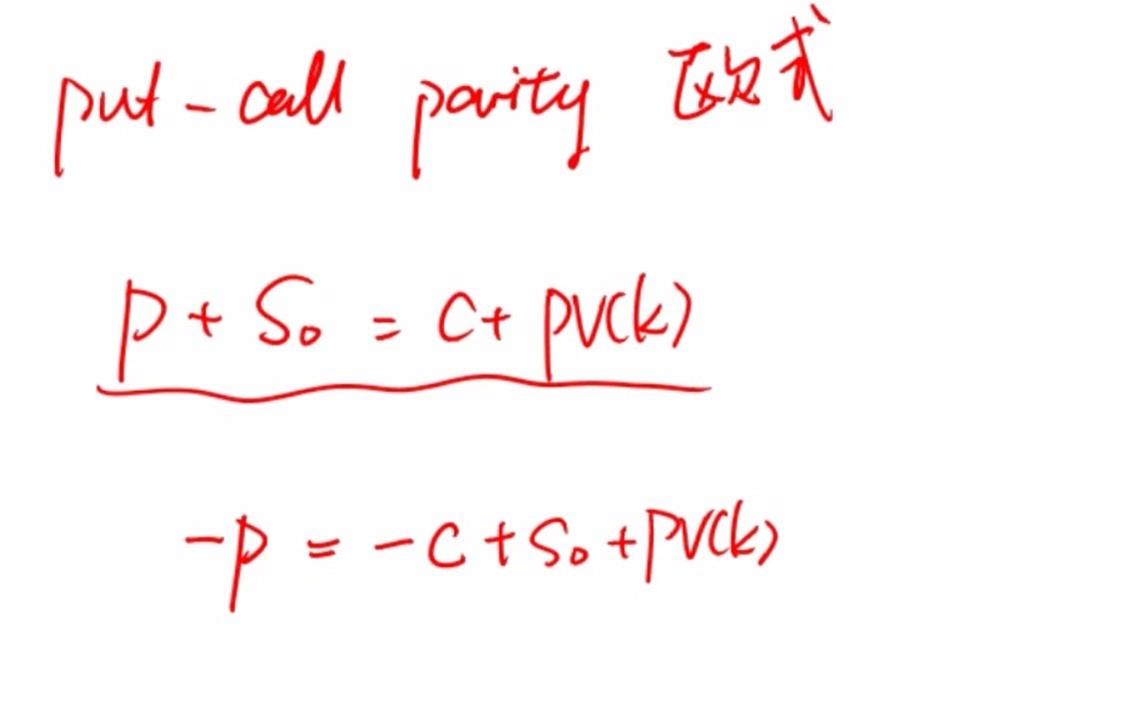 put-call parity 欧式
p + S₀ = c + pv(k)
-p = -c + S₀ + pv(k)